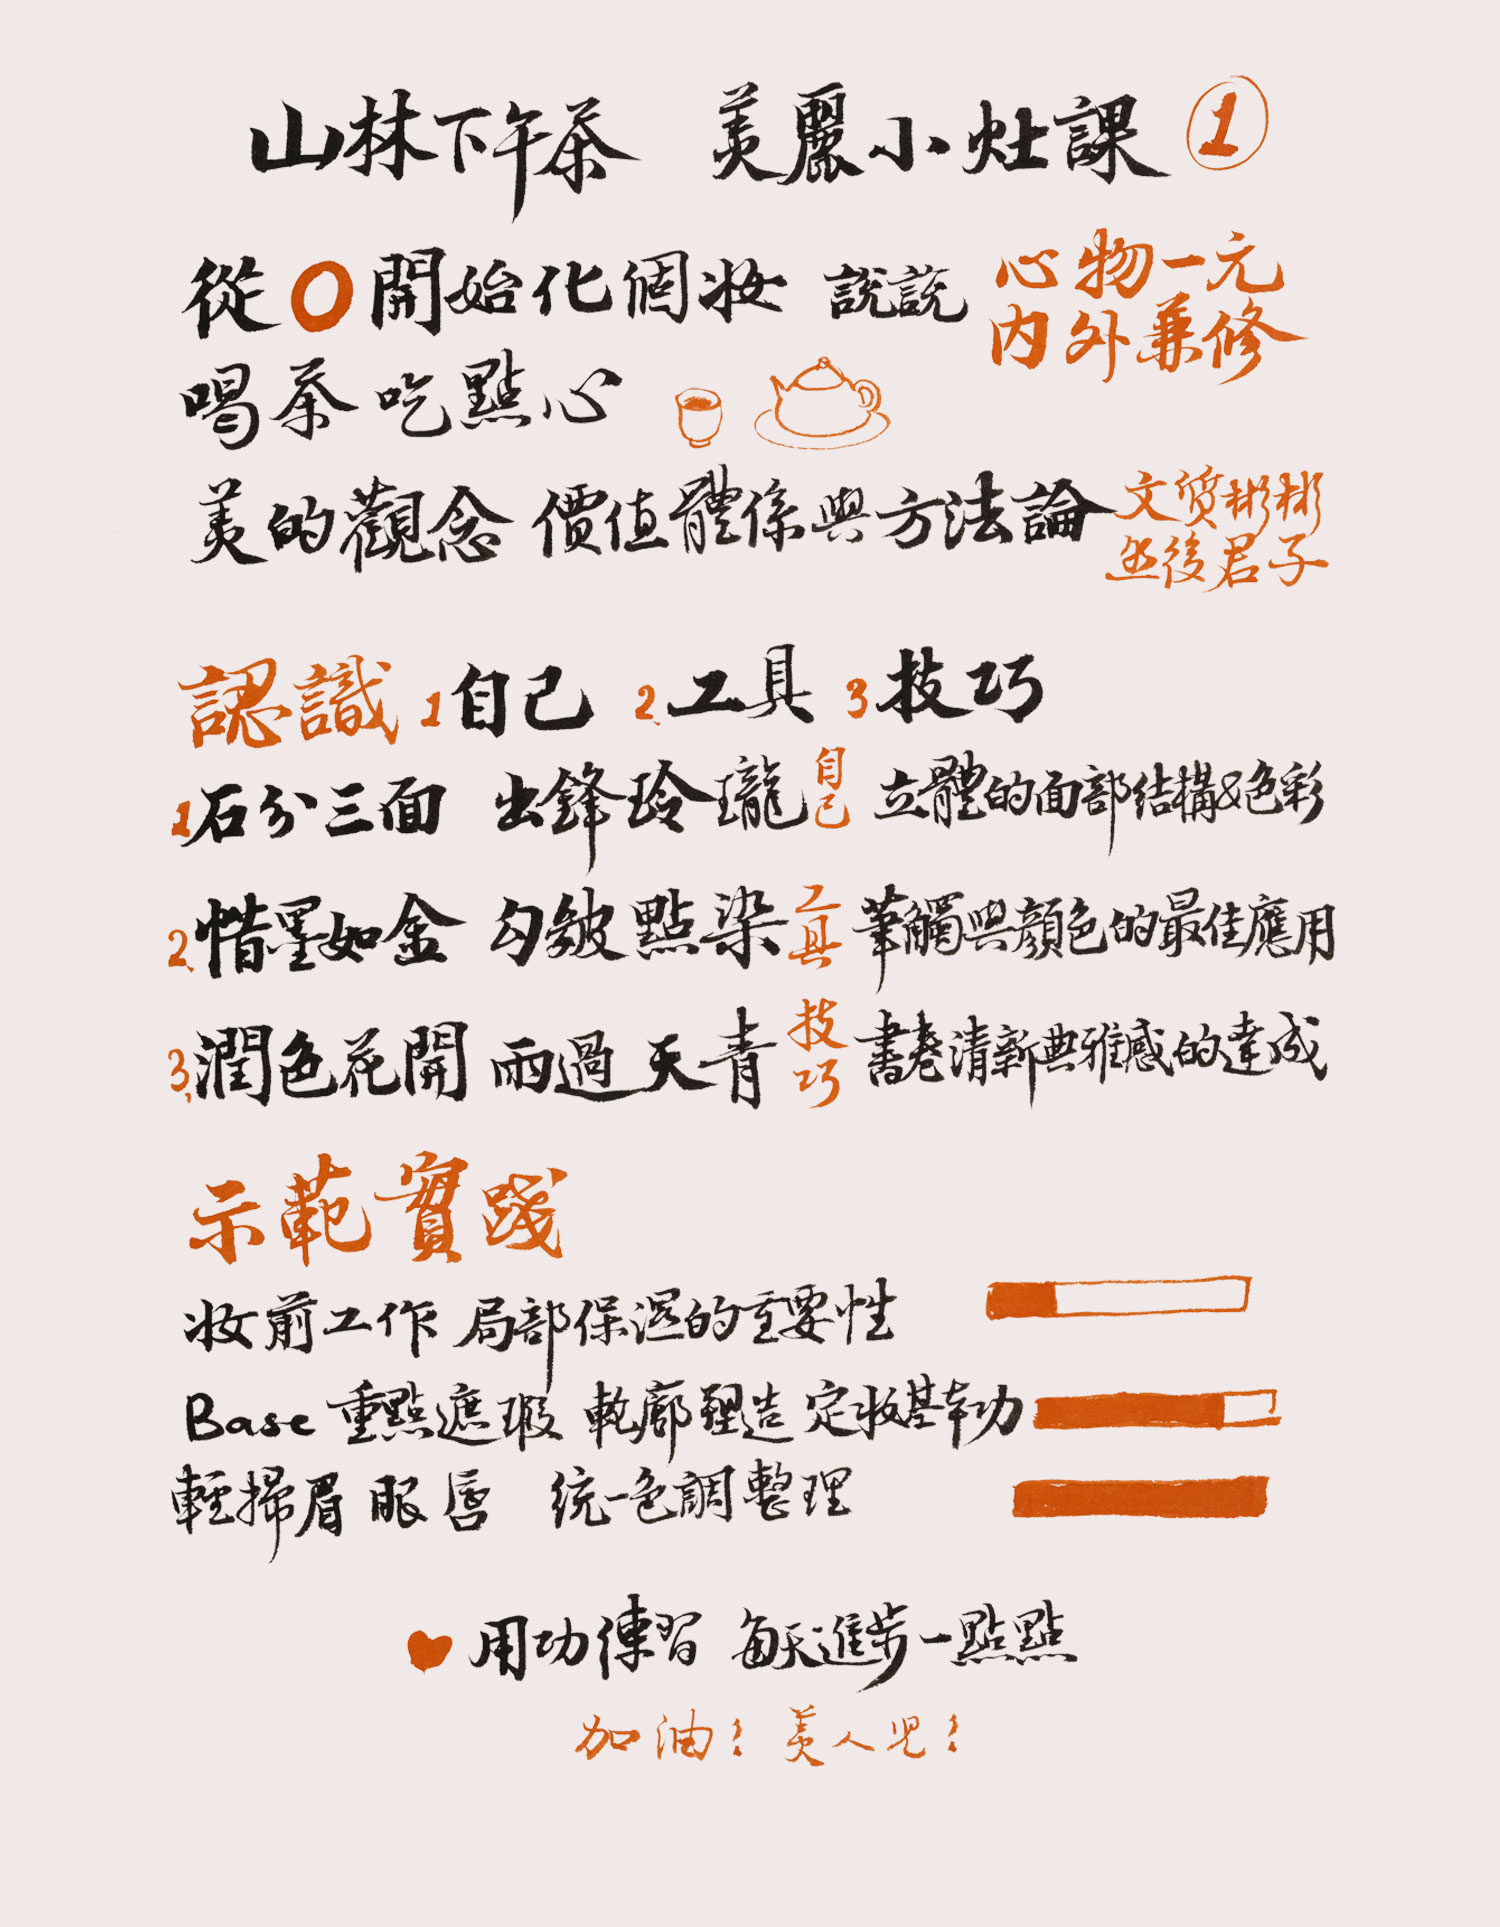 山林下午茶 美麗小灶課 1
從0開始化個妝 說說 心物一元
內外兼修
喝茶 吃點心
美的觀念 價值體係與方法論 文质彬彬
然後君子
認識 1自己 2.工具 3技巧
1石分三面 出鋒玲瓏 自己 立體的面部結構&色彩
2.惜墨如金 勾皴點染 工具 筆觸與顏色的最佳應用
3.潤色花開 雨過天青 技巧 書卷清新典雅感的達成
示範實踐
妝前工作 局部保濕的重要性
Base 重點遮瑕 輪廓塑造 定妝基本功
輕掃眉 眼 唇 统一色調整理
用功練習 每天進步一點點
加油! 美人児!